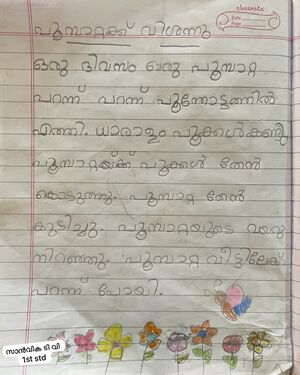 classmate
Date
Page
പൂമ്പാറ്റക്ക് വിശന്നു
ഒരു ദിവസം ഒരു പൂമ്പാറ്റ
പറന്ന് പറന്ന് പൂന്തോട്ടത്തിൽ
എത്തി. ധാരാളം പൂക്കൾ കണ്ടു
പൂമ്പാറ്റയ്ക്ക് പൂക്കൾ തേൻ
കൊടുത്തു. പൂമ്പാറ്റ തേൻ
കുടിച്ചു. പൂമ്പാറ്റയുടെ വയറു
നിറഞ്ഞു. പൂമ്പാറ്റ വീട്ടിലേക്ക്
പറന്ന് പോയി.
സാൻവിക ടി വി
1st std